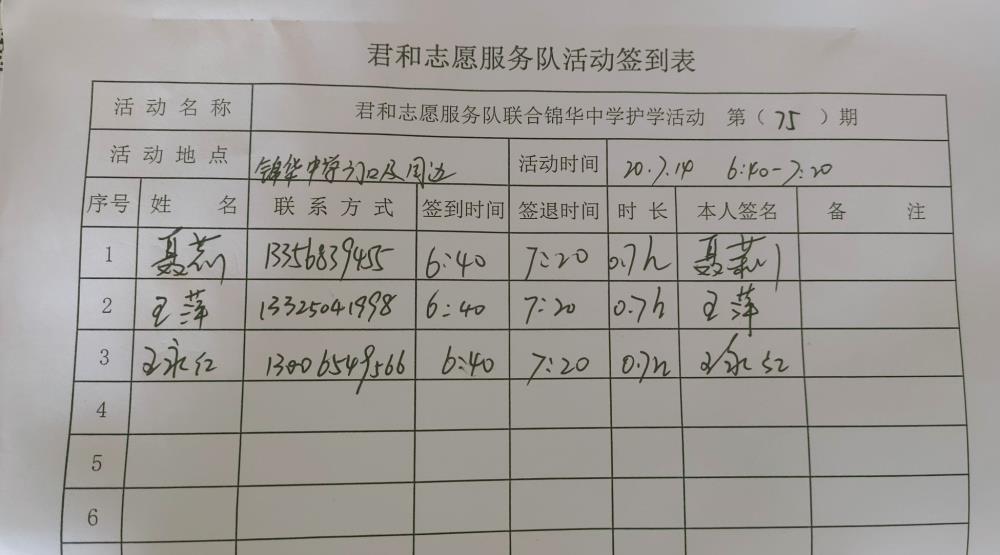 君和志愿服务队活动签到表
活动名称 君和志愿服务队联合锦华中学护学活动 第（75）期
活动地点 锦华中学门口及周边 活动时间 20.7.14 6:40-7:20
序号 姓名 联系方式 签到时间 签退时间 时长 本人签名 备注
1 聂莉 13356839455 6:40 7:20 0.7h 聂莉
2 王萍 13325041998 6:40 7:20 0.7h 王萍
3 王永红 13006549566 6:40 7:20 0.7h 王永红
4
5
6